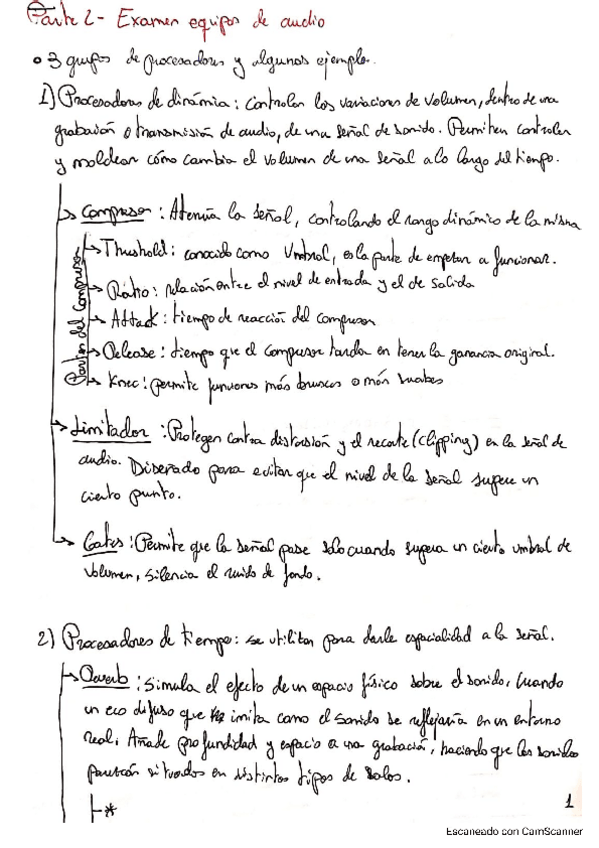 Parte 2 - Examen equipos de audio
• 3 grupos de procesadores y algunos ejemplo.
1) Procesadores de dinámia: Controlan las variaciones de volumen, dentro de una
grabación o transmisión de audio, de una señal de sonido. Permiten controlar
y moldear cómo cambia el volumen de una señal a lo largo del tiempo.
→ Compresor: Atenúa la señal, controlando el rango dinámico de la misma
Partes del Compresor
→ Threshold: conocido como Umbral, es la parte de empezar a funcionar.
→ Ratio: relación entre el nivel de entrada y el de salida
→ Attack: tiempo de reacción del compresor
→ Release: tiempo que el compresor tarda en tener la ganancia original.
→ Knee: permite funciones más bruscas o más suaves
→ Limitador: Protegen contra distorsión y el recorte (clipping) en la señal de
audio. Diseñado para evitar que el nivel de la señal supere un
cierto punto.
→ Gates: Permite que la señal pase solo cuando supera un cierto umbral de
volumen, silencia el ruido de fondo.
2) Procesadores de tiempo: se utilizan para darle espacialidad a la señal.
→ Reverb: Simula el efecto de un espacio físico sobre el sonido. Creando
un eco difuso que imita como el sonido se reflejaría en un entorno
real. Añade profundidad y espacio a una grabación, haciendo que los sonidos
parezcan situados en distintos tipos de salas.
*
1
Escaneado con CamScanner